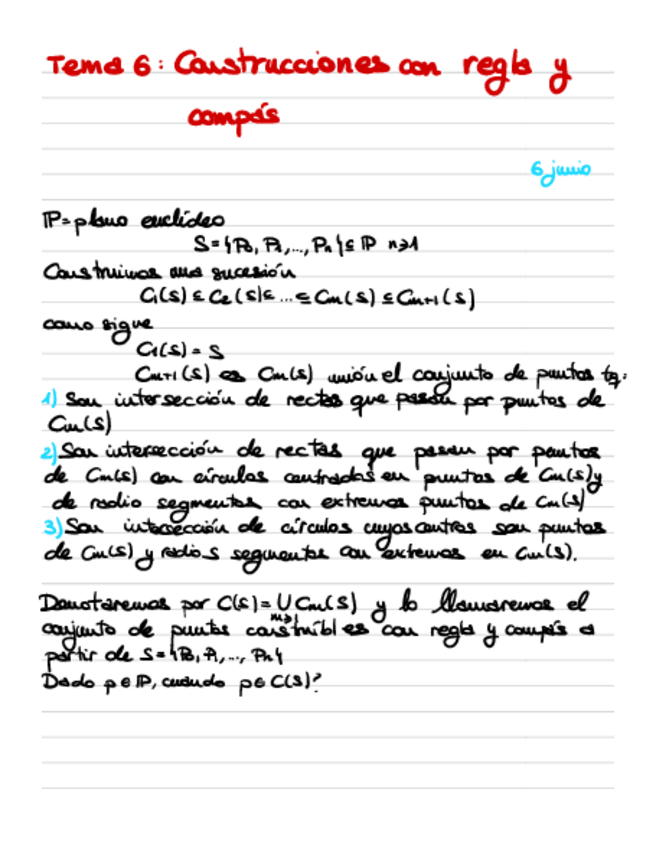 Tema 6: Construcciones con regla y
compás
6 junio
ℙ=plano euclídeo
S={P₀, P₁,..., Pₙ} ⊆ ℙ n≥1
Construimos una sucesión
C₁(S) ⊆ C₂(S) ⊆ ... ⊆ Cₘ(S) ⊆ Cₘ₊₁(S)
como sigue
C₁(S) = S
Cₘ₊₁(S) es Cₘ(S) unión el conjunto de puntos tq:
1) Son intersección de rectas que pasan por puntos de
Cₘ(S)
2) Son intersección de rectas que pasan por puntos
de Cₘ(S) con círculos centrados en puntos de Cₘ(S) y
de radio segmentos con extremos puntos de Cₘ(S)
3) Son intersección de círculos cuyos centros son puntos
de Cₘ(S) y radios segmentos con extremos en Cₘ(S).
Denotaremos por C(S) = ∪ Cₘ(S) y lo llamaremos el
m≥1
conjunto de puntos construíbles con regla y compás a
partir de S={P₀, P₁, ..., Pₙ}
Dado p ∈ ℙ, cuándo p ∈ C(S)?